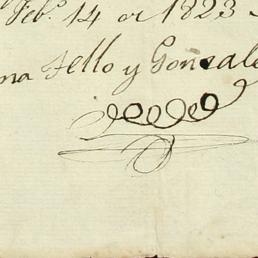 Feb.º 14 or 1823
na Tello y Gonsale